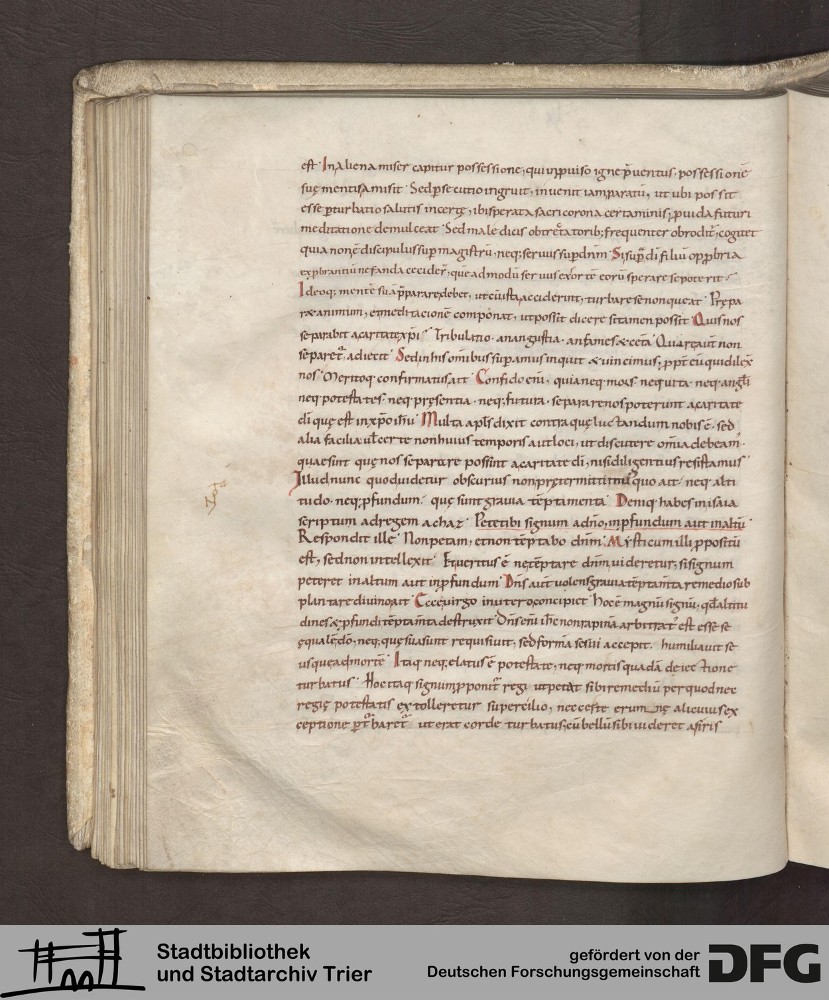 est · In aliena miser capitur possessione, qui inpviso igne p̄uentus · possessionē
suę mentis amisit · Sed psecutio ingruit, inuenit iam paratū, ut ubi possit
esse pturbatio salutis incertę, ibi sperata sacri corona certaminis; puida futuri
meditatione demulceat · Sed maledicis obtrectatorib; frequenter obrodit̄, cogitet
quia non ē discipulus sup magistrū, neq; seruus sup dn̄m · Si sup di filiū opp̱bria
exp̱brantiū nefanda cecider̄, quēadmodū seruus exortē eorū sperare se poterit ·
Ideoq; mentē suā p̄parare debet, ut cū ista acciderint, turbare se non queat · Prępa
ret animum, et meditationē componat, ut possit dicere si tamen possit · Quis nos
separabit a caritate xp̄i · Tribulatio · an angustia · an fames & ceta · Quare aut̄ non
separet̄, adiecit · Sed in his omībus supamus inquit & uincimus, ppt eū qui dilex
nos · Merito q; confirmatus ait · Confido enī, quia neq; mors neq; uita · neq; angl̄i
neq; potestates · neq; pręsentia · neq; futura · separare nos poterunt a caritate
di quę est in xpo ih̄u · Multa apl̄s dixit contra quę luctandum nobis ē · sed
alia facilia ut l certe non huius temporis aut loci, ut discutere om̄ia debeam ·
quae sint quę nos separare possint a caritate di, nisi diligentius resistamus ·
Illud nunc quod uidetur obscurius non prętermittimus quo ait · neq; alti
tudo · neq; pfundum · quę sunt grauia tēptamenta · Deniq; habes in isaia
scriptum ad regem achaz · Pete tibi signum a dn̄o, in pfundum aut in altū ·
Respondit ille · Non petam, et non tēptabo dn̄m · Mysticum illi ppositū
est, sed non intellexit · Et ueritus ē ne tēptare dn̄m uideretur, si signum
peteret in altum aut in pfundum · Dn̄s aut̄ uolens grauia tēptam̄ta remedio sub
plantare diuino, ait · Ecce uirgo in utero concipiet · Hoc ē magnū signū, qd altitu
dines & pfundi tēptam̄ta destruxit · Dn̄s enī ih̄c non rapinā arbitrat̄ est esse se
ęqualē do, neq; quę sua sunt requisiuit, sed formā serui accepit · humiliauit se
usque ad mortē · Itaq; neq; elatus ē potestate, neq; mortis quadā deiectione
turbatus · Hoc itaq; signum pponit̄ regi ut petat sibi remediū per quod nec
regię potestatis extolleretur supercilio, nec ceste erumnę alicuius ex
ceptione pt̄baret̄ · ut erat corde turbatus, cū bellū sibi uideret asiris
Stadtbibliothek
und Stadtarchiv Trier
gefördert von der
Deutschen Forschungsgemeinschaft
DFG